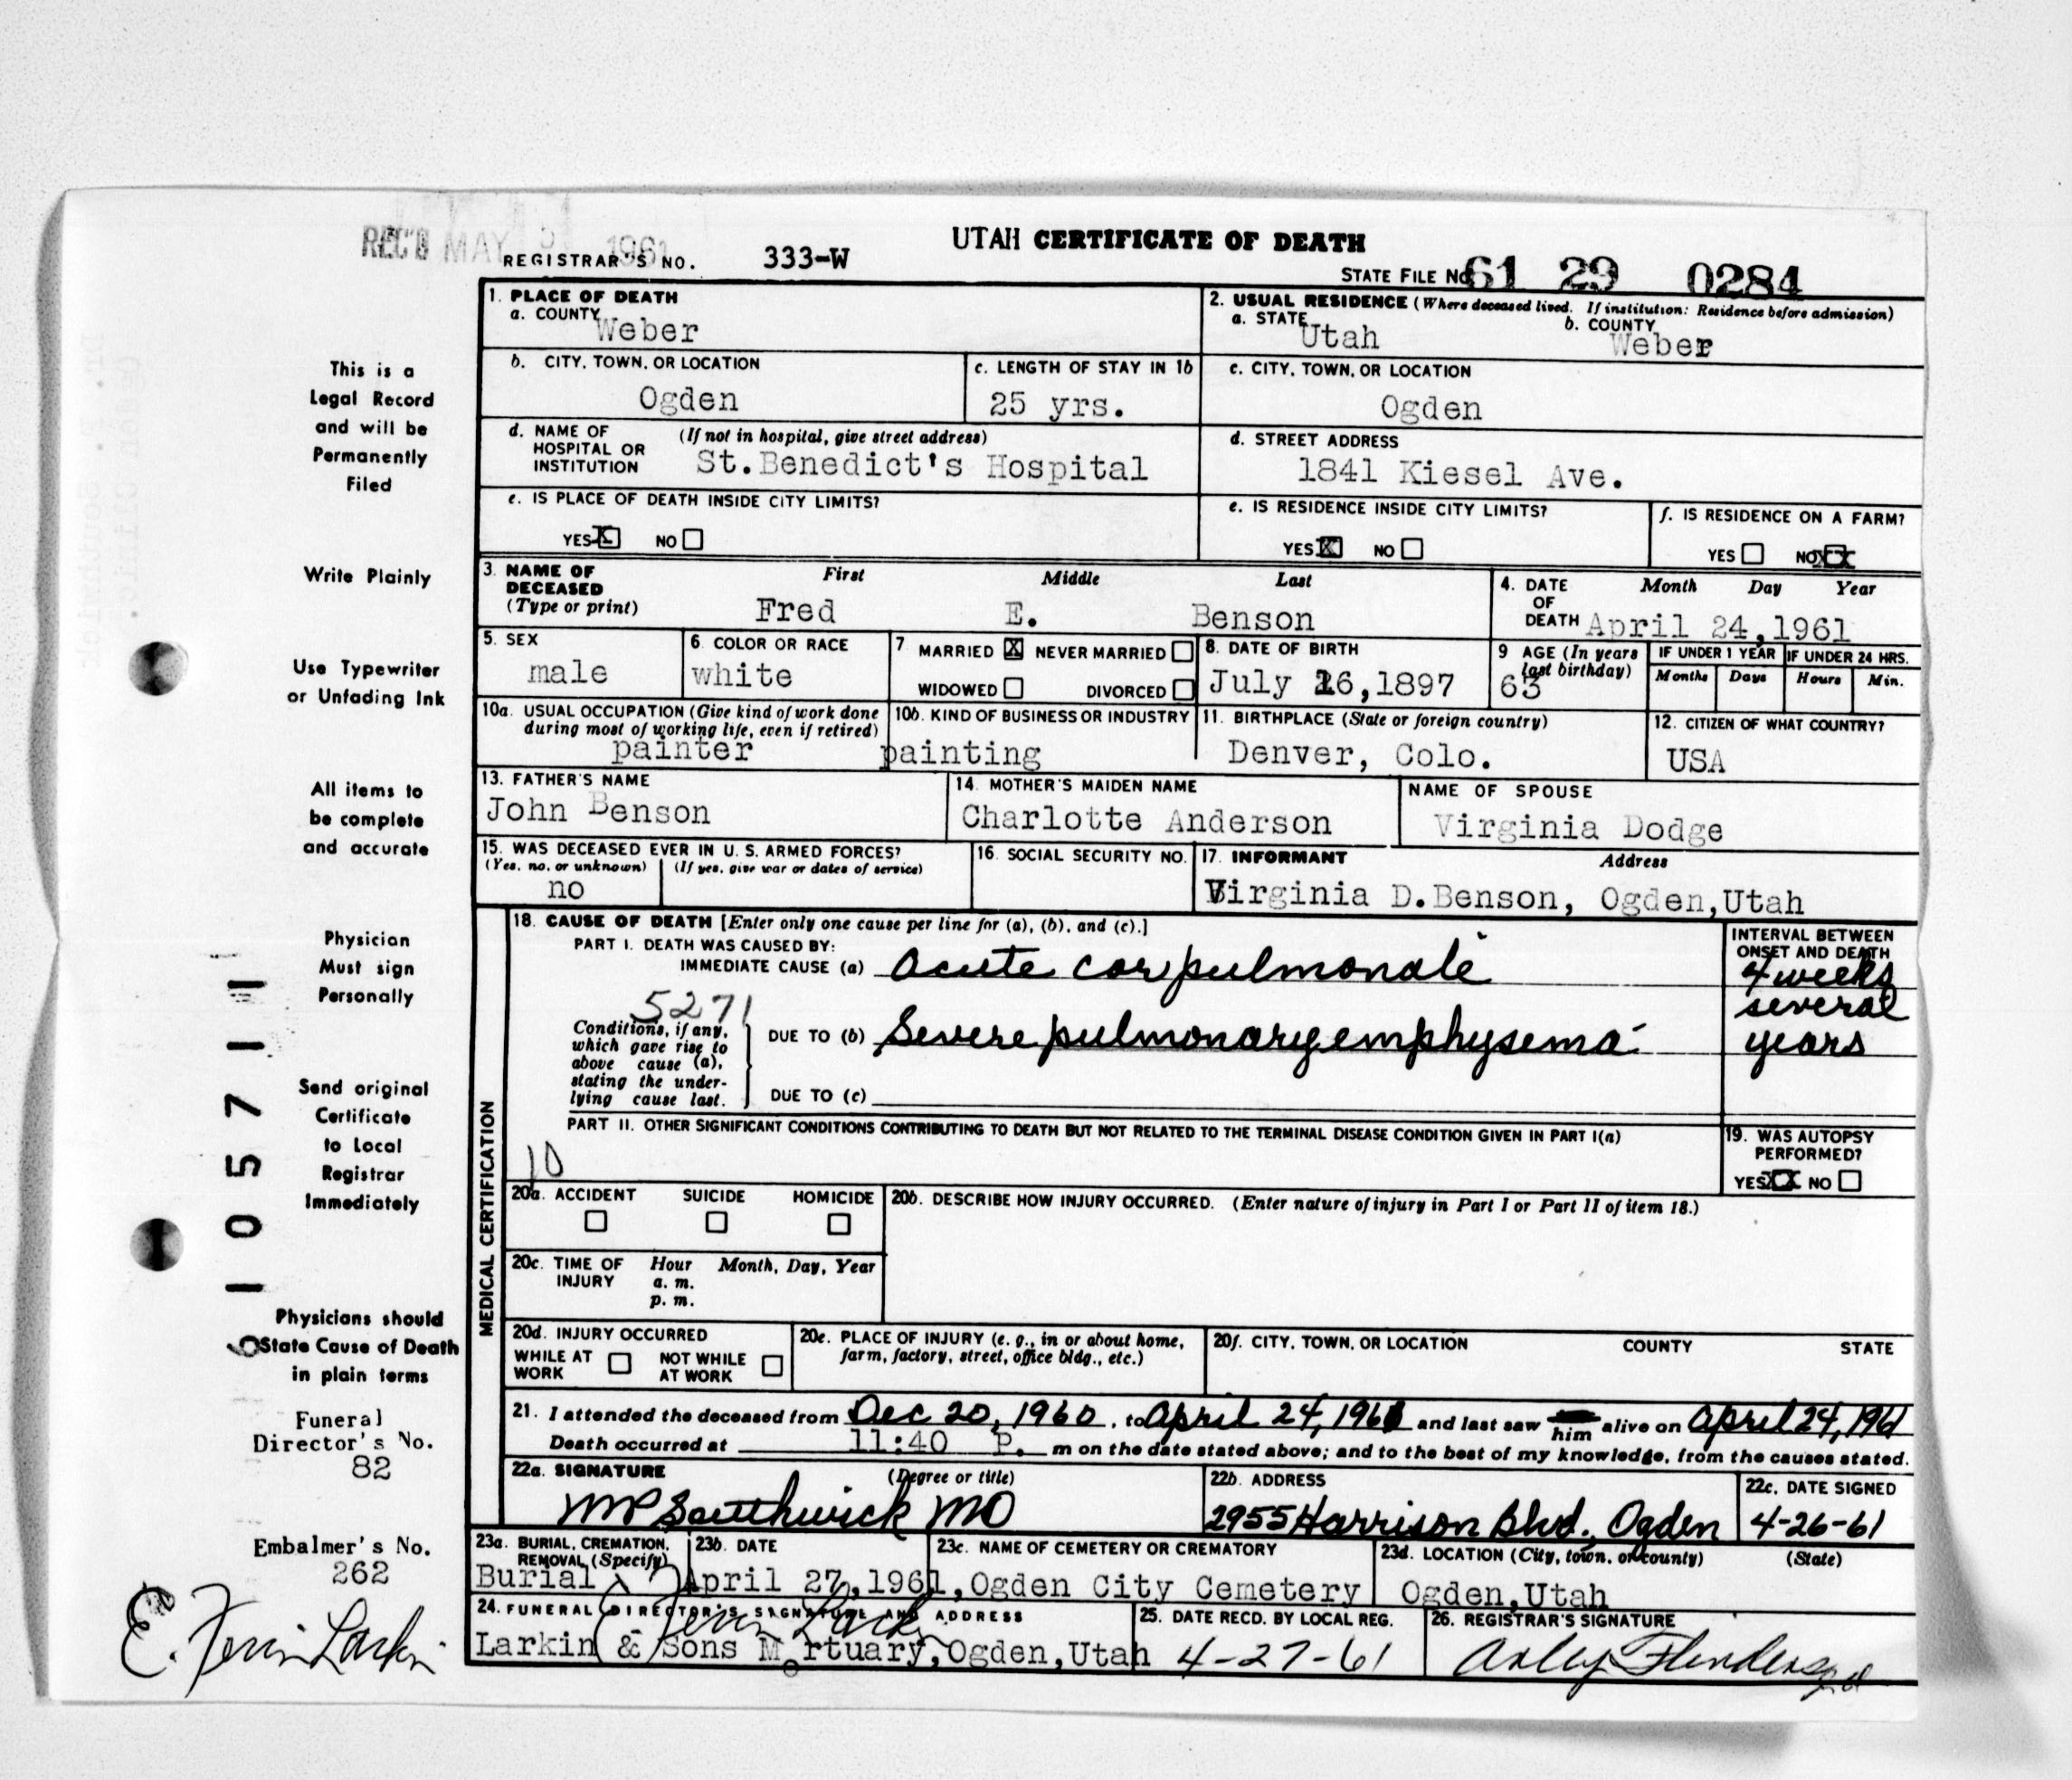 REC'D MAY 5 1961
UTAH CERTIFICATE OF DEATH
REGISTRAR'S NO. 333-W
STATE FILE NO. 61 29 0284
This is a
Legal Record
and will be
Permanently
Filed
Write Plainly
Use Typewriter
or Unfading Ink
All items to
be complete
and accurate
Physician
Must sign
Personally
Send original
Certificate
to Local
Registrar
Immediately
Physicians should
State Cause of Death
in plain terms
Funeral
Director's No.
82
Embalmer's No.
262
E. Ferrin Larkin
1105711
1. PLACE OF DEATH
a. COUNTY Weber
2. USUAL RESIDENCE (Where deceased lived. If institution: Residence before admission)
a. STATE Utah b. COUNTY Weber
b. CITY, TOWN, OR LOCATION Ogden
c. LENGTH OF STAY IN 1b 25 yrs.
c. CITY, TOWN, OR LOCATION Ogden
d. NAME OF HOSPITAL OR INSTITUTION (If not in hospital, give street address) St.Benedict's Hospital
d. STREET ADDRESS 1841 Kiesel Ave.
e. IS PLACE OF DEATH INSIDE CITY LIMITS?
YES X NO
e. IS RESIDENCE INSIDE CITY LIMITS?
YES X NO
f. IS RESIDENCE ON A FARM?
YES NO XX
3. NAME OF DECEASED (Type or print) First Middle Last
Fred E. Benson
4. DATE OF DEATH Month Day Year
April 24,1961
5. SEX male
6. COLOR OR RACE white
7 MARRIED X NEVER MARRIED
WIDOWED DIVORCED
8. DATE OF BIRTH July 16,1897
9 AGE (In years last birthday) 63
IF UNDER 1 YEAR Months Days
IF UNDER 24 HRS. Hours Min.
10a. USUAL OCCUPATION (Give kind of work done during most of working life, even if retired) painter
10b. KIND OF BUSINESS OR INDUSTRY painting
11. BIRTHPLACE (State or foreign country) Denver, Colo.
12. CITIZEN OF WHAT COUNTRY? USA
13. FATHER'S NAME John Benson
14. MOTHER'S MAIDEN NAME Charlotte Anderson
NAME OF SPOUSE Virginia Dodge
15. WAS DECEASED EVER IN U. S. ARMED FORCES?
(Yes, no, or unknown) (If yes, give war or dates of service)
no
16. SOCIAL SECURITY NO.
17. INFORMANT Address
Virginia D.Benson, Ogden,Utah
MEDICAL CERTIFICATION
18. CAUSE OF DEATH [Enter only one cause per line for (a), (b), and (c).]
PART I. DEATH WAS CAUSED BY:
IMMEDIATE CAUSE (a) Acute cor pulmonale
INTERVAL BETWEEN ONSET AND DEATH
4 weeks
5271
Conditions, if any, which gave rise to above cause (a), stating the underlying cause last.
DUE TO (b) Severe pulmonary emphysema
several years
DUE TO (c)
PART II. OTHER SIGNIFICANT CONDITIONS CONTRIBUTING TO DEATH BUT NOT RELATED TO THE TERMINAL DISEASE CONDITION GIVEN IN PART I(a)
10
19. WAS AUTOPSY PERFORMED?
YES XX NO
20a. ACCIDENT SUICIDE HOMICIDE
20b. DESCRIBE HOW INJURY OCCURRED. (Enter nature of injury in Part I or Part II of item 18.)
20c. TIME OF INJURY Hour Month, Day, Year
a. m.
p. m.
20d. INJURY OCCURRED
WHILE AT WORK NOT WHILE AT WORK
20e. PLACE OF INJURY (e. g., in or about home, farm, factory, street, office bldg., etc.)
20f. CITY, TOWN, OR LOCATION COUNTY STATE
21. I attended the deceased from Dec 20, 1960, to April 24, 1961 and last saw him alive on April 24, 1961
Death occurred at 11:40 P. m on the date stated above; and to the best of my knowledge, from the causes stated.
22a. SIGNATURE (Degree or title)
MP Southwick MD
22b. ADDRESS
2955 Harrison Blvd., Ogden
22c. DATE SIGNED
4-26-61
23a. BURIAL, CREMATION, REMOVAL (Specify) Burial
23b. DATE April 27,1961,
23c. NAME OF CEMETERY OR CREMATORY Ogden City Cemetery
23d. LOCATION (City, town, or county) (State)
Ogden,Utah
24. FUNERAL DIRECTOR'S SIGNATURE AND ADDRESS
Larkin & Sons Mortuary,Ogden,Utah
25. DATE RECD. BY LOCAL REG.
4-27-61
26. REGISTRAR'S SIGNATURE